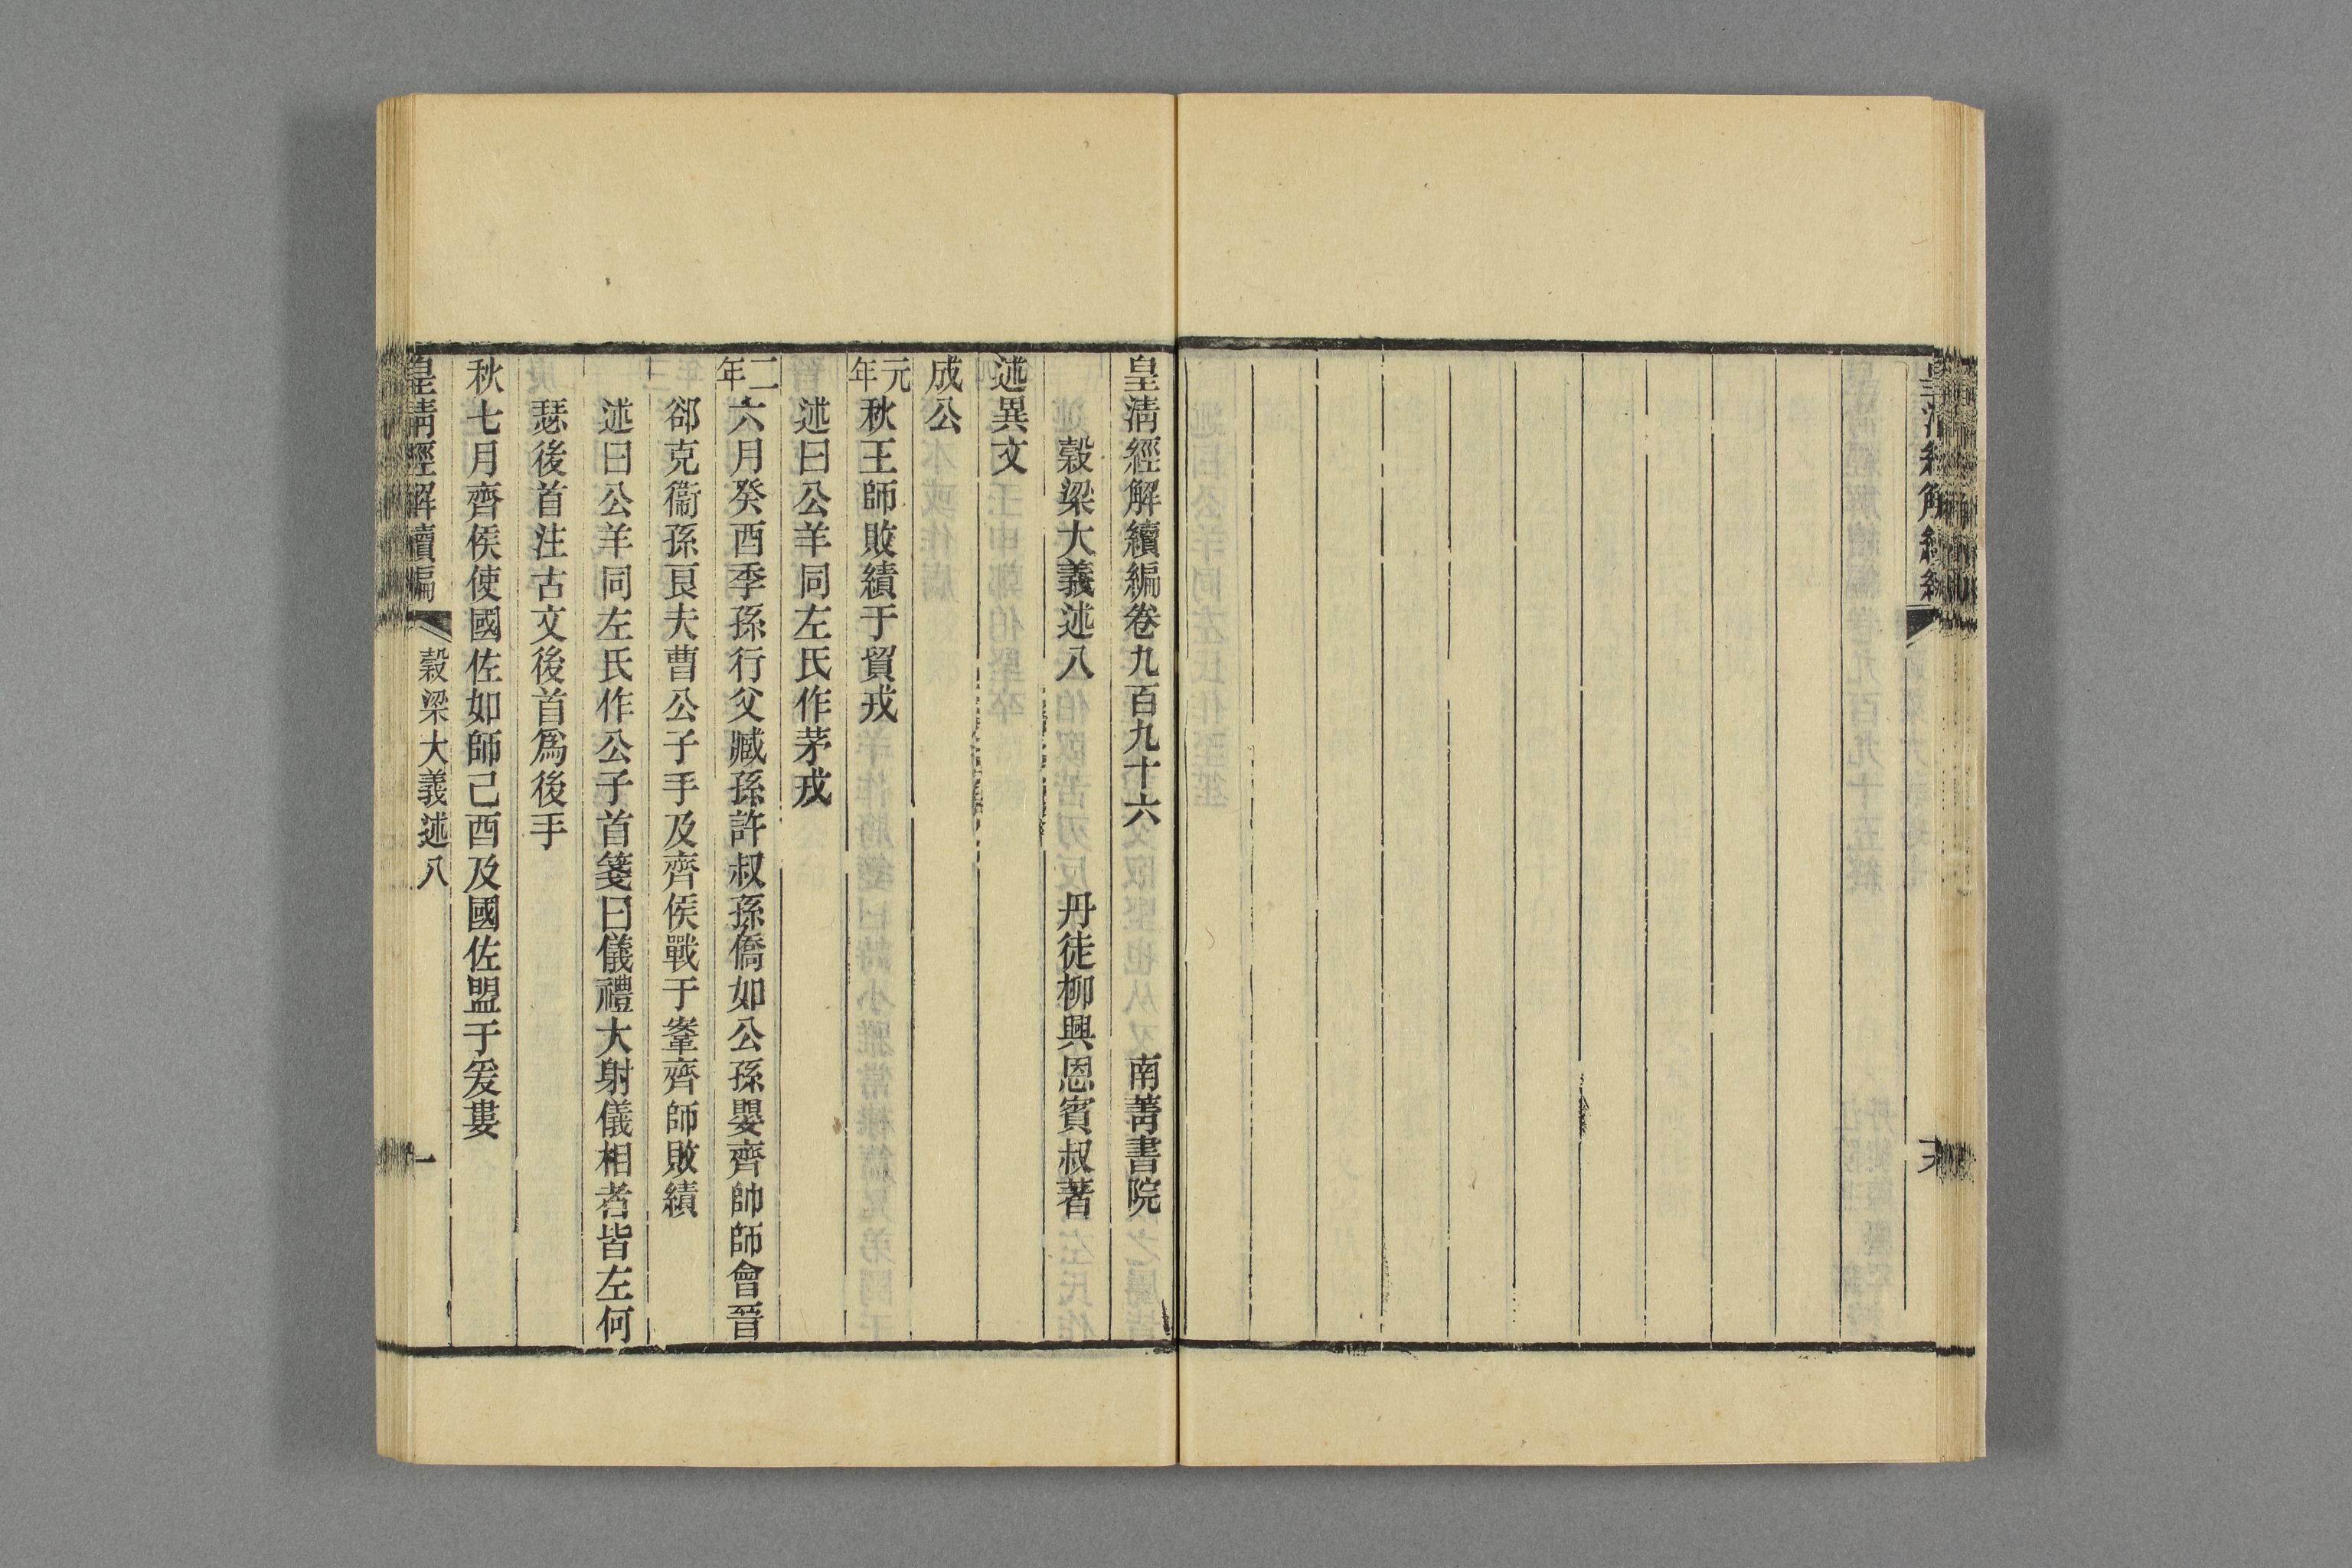 皇清經解續編卷九百九十六 南菁書院
穀梁大義述八 丹徒柳興恩賓叔著
述異文
成公
元年秋王師敗績于貿戎
述曰公羊同左氏作茅戎
二年六月癸酉季孫行父臧孫許叔孫僑如公孫嬰齊帥師會晉
郤克衞孫良夫曹公子手及齊侯戰于鞌齊師敗績
述曰公羊同左氏作公子首箋曰儀禮大射儀相者皆左何
瑟後首注古文後首爲後手
秋七月齊侯使國佐如師己酉及國佐盟于爰婁
皇清經解續編 穀梁大義述八 一